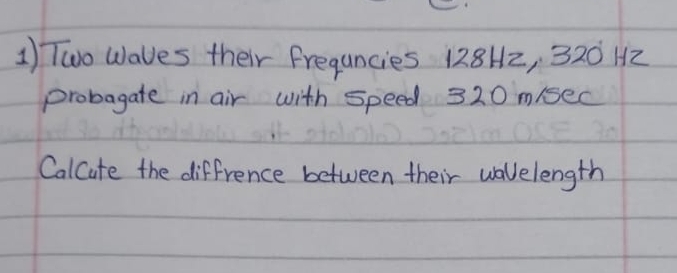 1) Two waves their frequncies 128Hz, 320 Hz
probagate in air with speed 320 m/sec
CalCute the diffrence between their wavelength